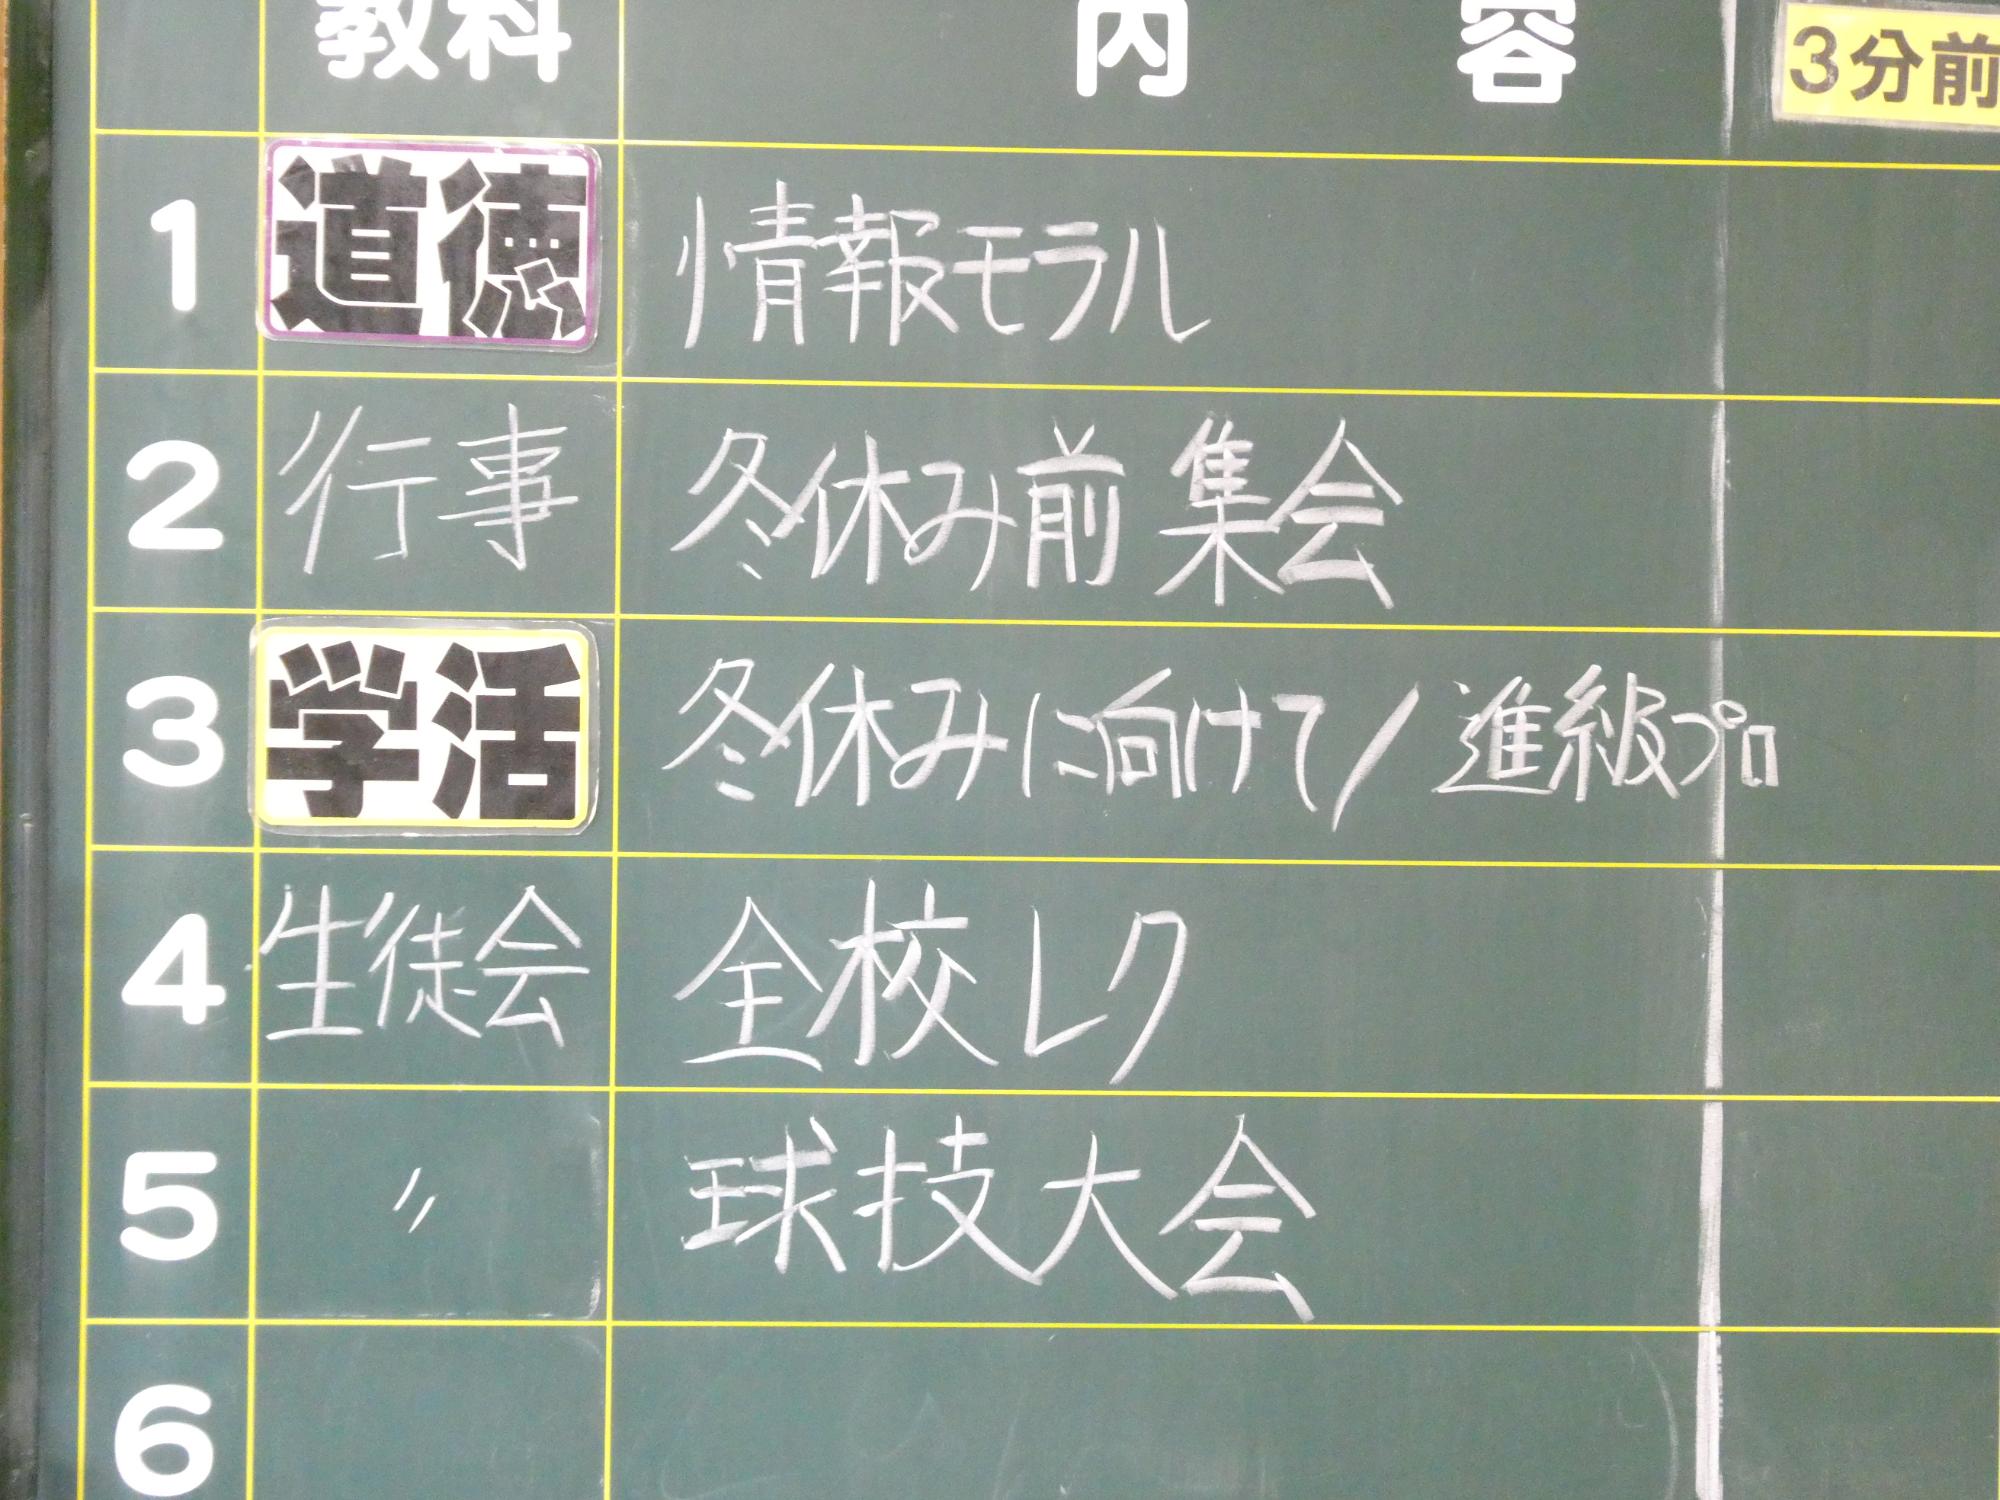 教科 内容 3分前
1 道徳 情報モラル
2 行事 冬休み前集会
3 学活 冬休みに向けて/進級プロ
4 生徒会 全校レク
5 〃 球技大会
6